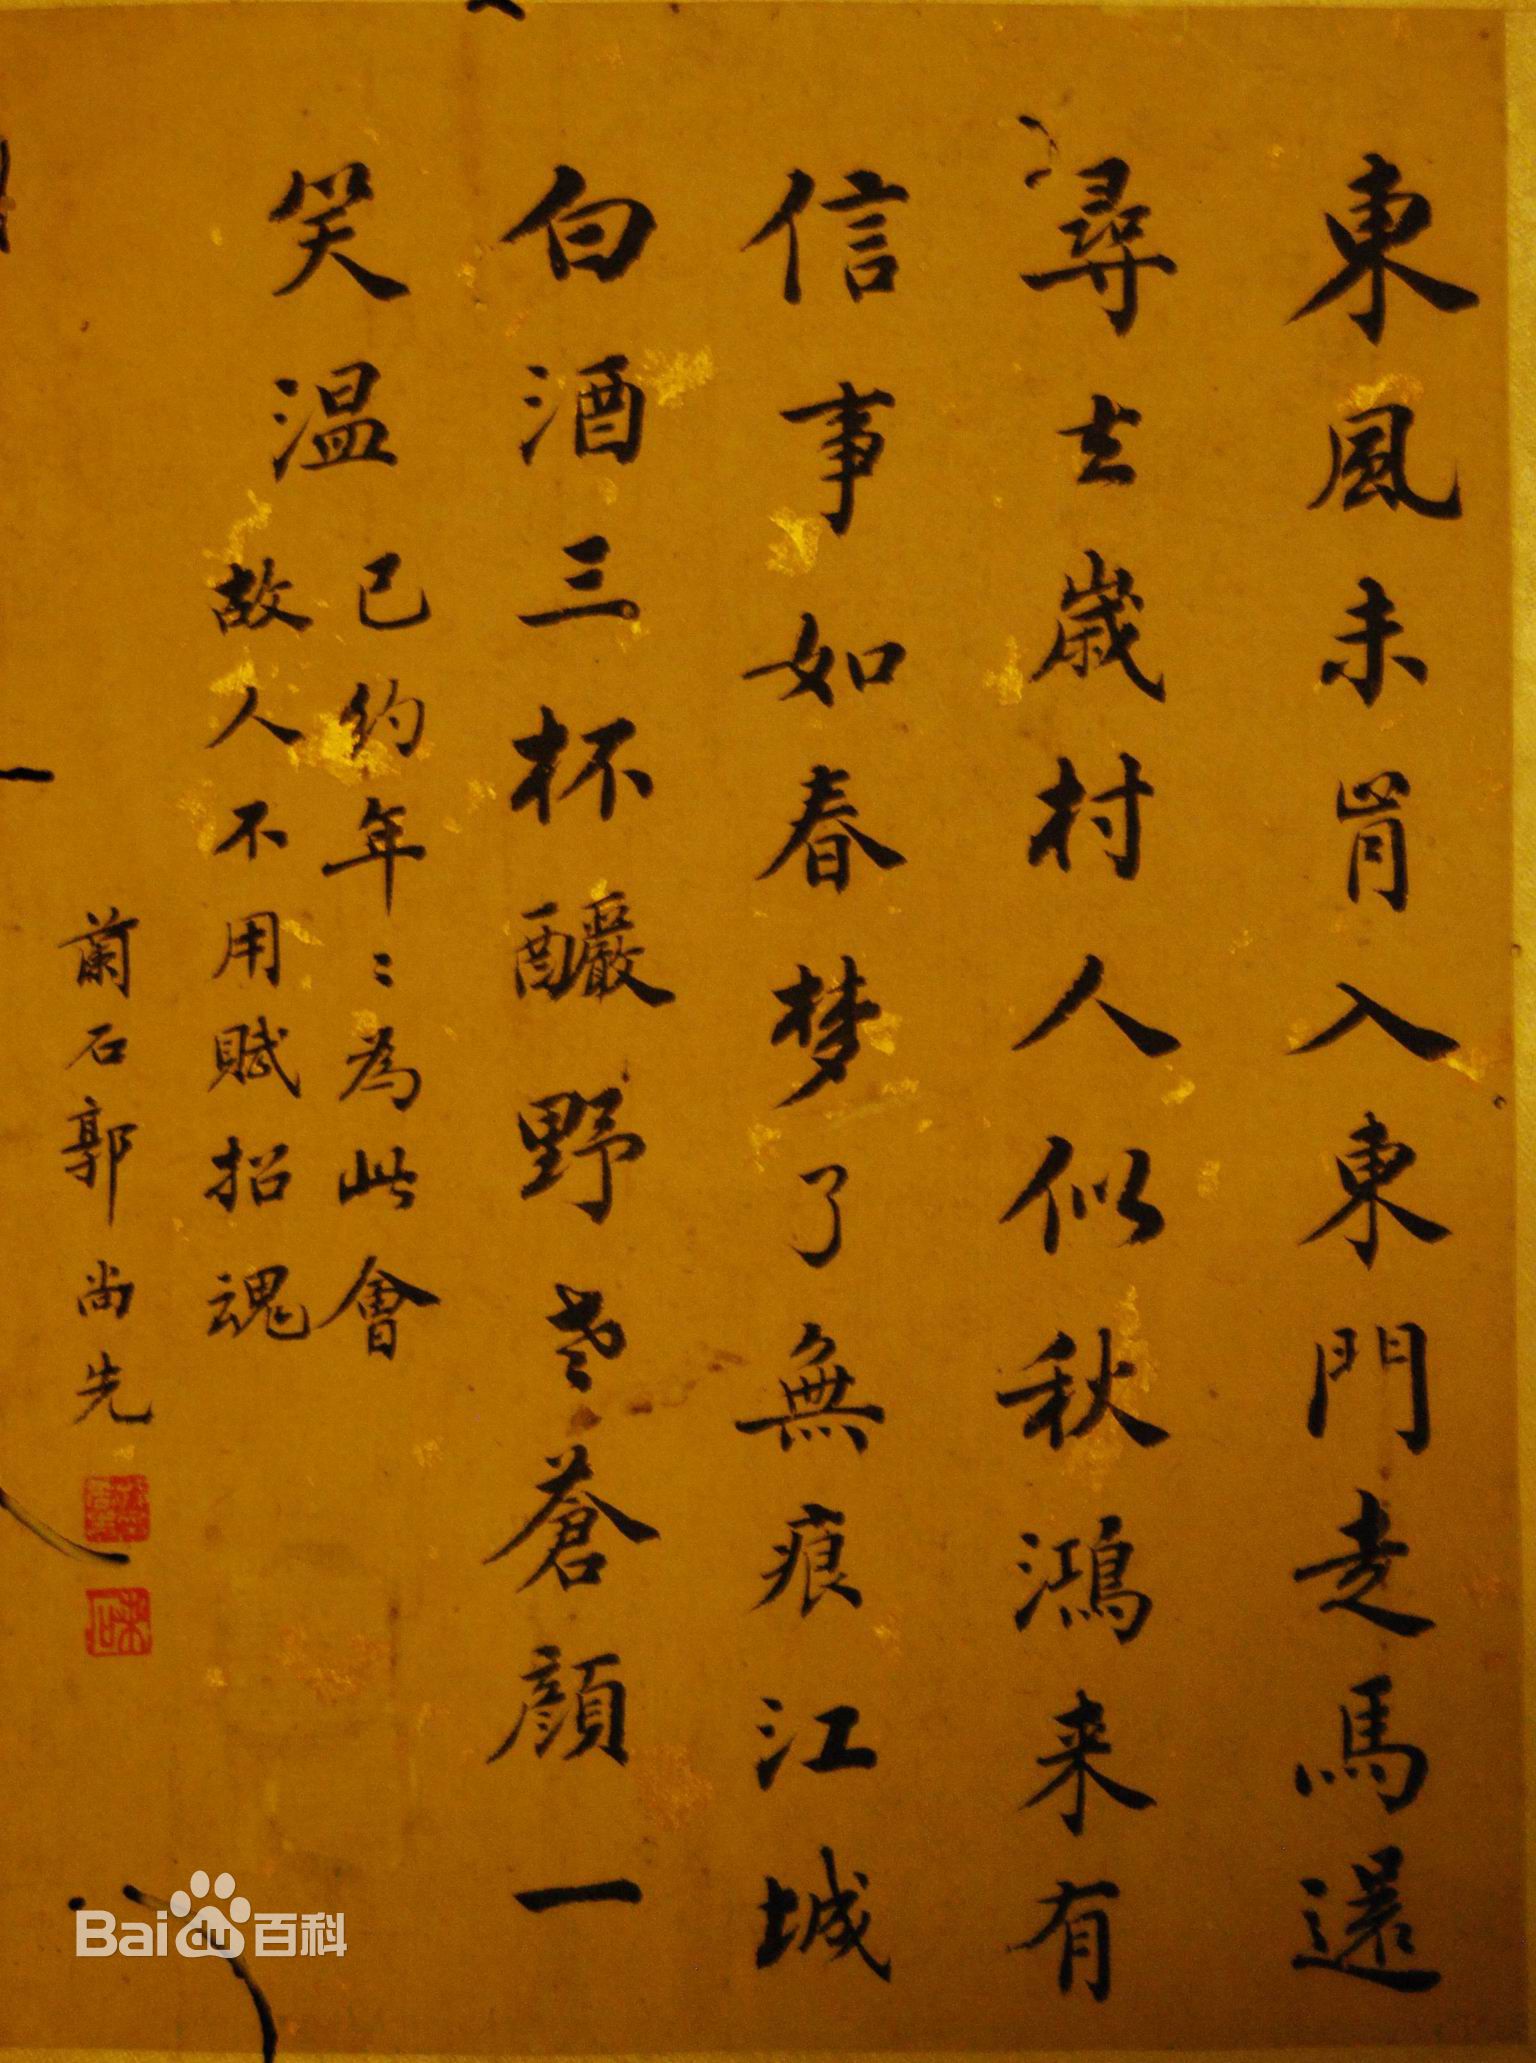 東風未肯入東門走馬還
尋去歲村人似秋鴻来有
信事如春梦了無痕江城
白酒三杯釅野老蒼顔一
笑温已約年〻為此會
故人不用賦招魂
蘭石郭尚先
Baidu百科